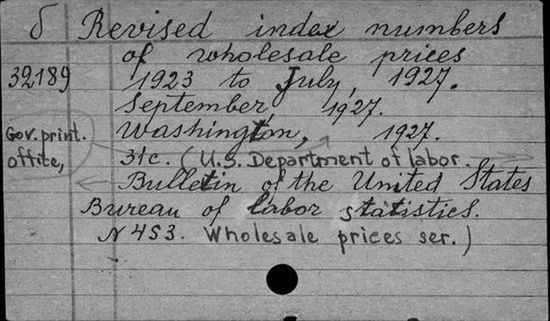 δ Revised index numbers
of wholesale prices
32189 1923 to July, 1927.
September, 1927.
Gov. print. Washington, 1927.
office, 31c. (U.S. Department of labor.
Bulletin of the United States
Bureau of labor statistics.
N 453. Wholesale prices ser.)